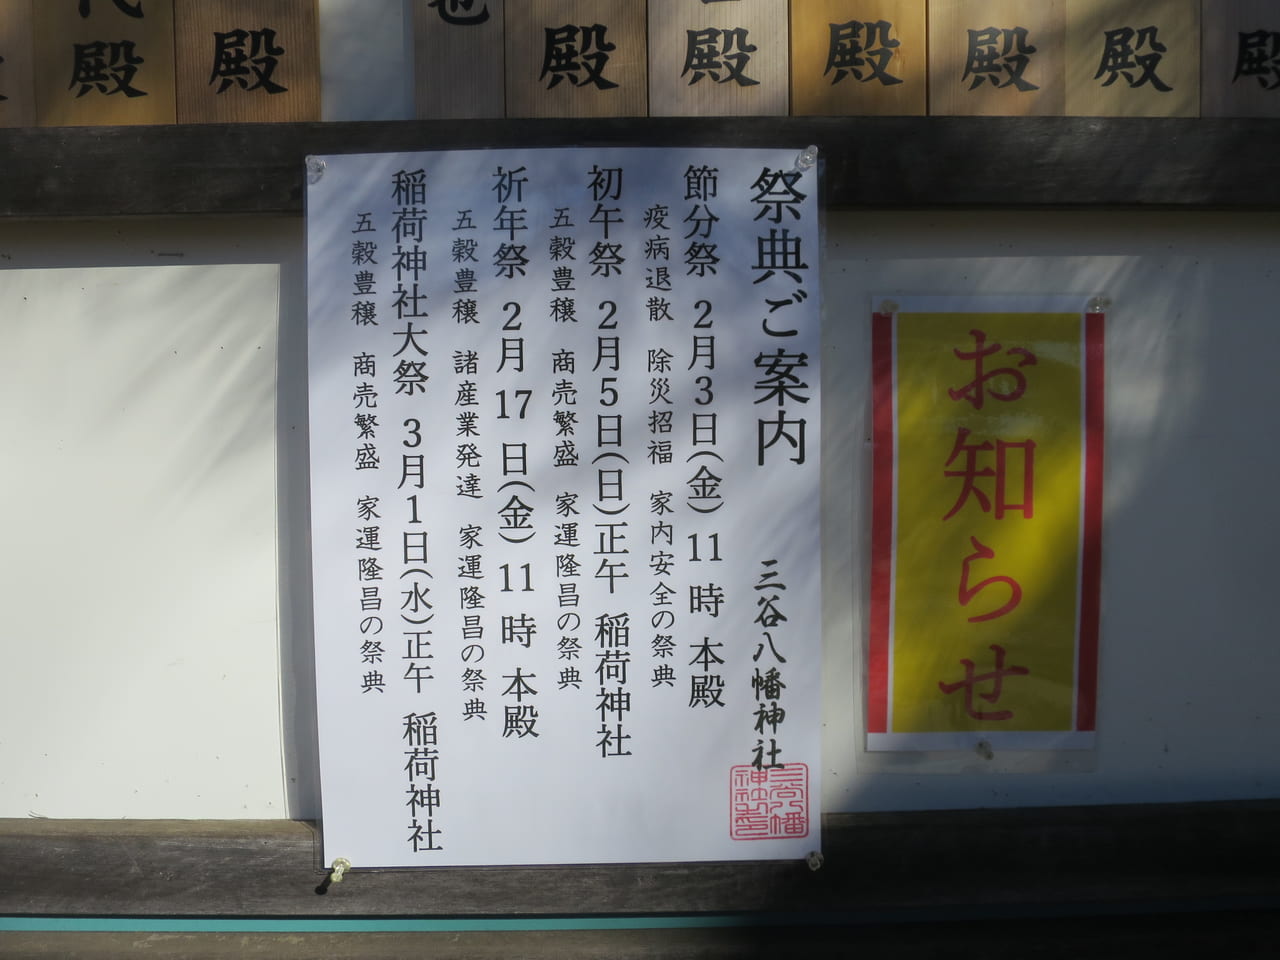 祭典ご案内 三谷八幡神社
節分祭 2月3日(金) 11時 本殿
疫病退散 除災招福 家内安全の祭典
初午祭 2月5日(日)正午 稲荷神社
五穀豊穣 商売繁盛 家運隆昌の祭典
祈年祭 2月17日(金) 11時 本殿
五穀豊穣 諸産業発達 家運隆昌の祭典
稲荷神社大祭 3月1日(水)正午 稲荷神社
五穀豊穣 商売繁盛 家運隆昌の祭典
三谷八幡
神社之印
お知らせ
殿
殿
也
殿
殿
殿
殿
殿
殿